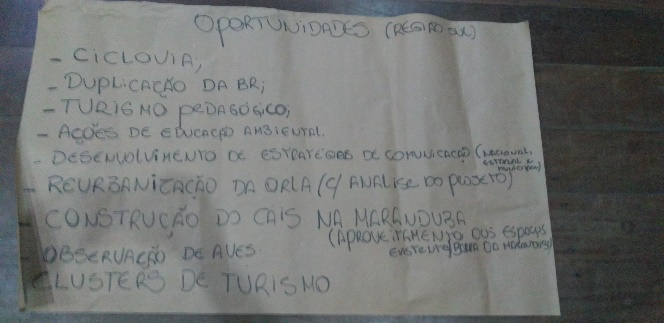 OPORTUNIDADES (REGIÃO SUL)
- CICLOVIA;
- DUPLICAÇÃO DA BR;
- TURISMO PEDAGÓGICO;
- AÇÕES DE EDUCAÇÃO AMBIENTAL.
- DESENVOLVIMENTO DE ESTRATÉGIAS DE COMUNICAÇÃO (NACIONAL,
ESTADUAL E
MUNICIPAL)
- REURBANIZAÇÃO DA ORLA (C/ ANÁLISE DO PROJETO)
- CONSTRUÇÃO DO CAIS NA MARANDUBA
(APROVEITAMENTO DOS ESPAÇOS
EXISTENTES/BARRA DO MARANDUBA)
- OBSERVAÇÃO DE AVES.
CLUSTERS DE TURISMO